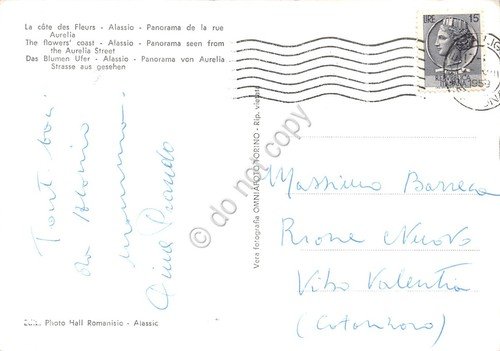 La côte des Fleurs - Alassio - Panorama de la rue
Aurelia
The flowers' coast - Alassio - Panorama seen from
the Aurelia Street
Das Blumen Ufer - Alassio - Panorama von Aurelia
Strasse aus gesehen
LIRE 15
1959
Tanti baci
da
Vera fotografia OMNIAFOTO TORINO - Rip. vietata
© do not copy
Massimo
Rione Nuovo
Vibo Valentia
(Catanzaro)
Photo Hall Romanisio - Alassio